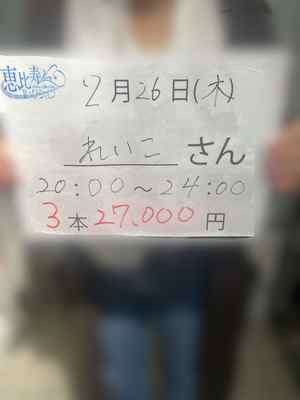 恵比寿
2月26日(木)
れいこ さん
20:00〜24:00
3本27.000円